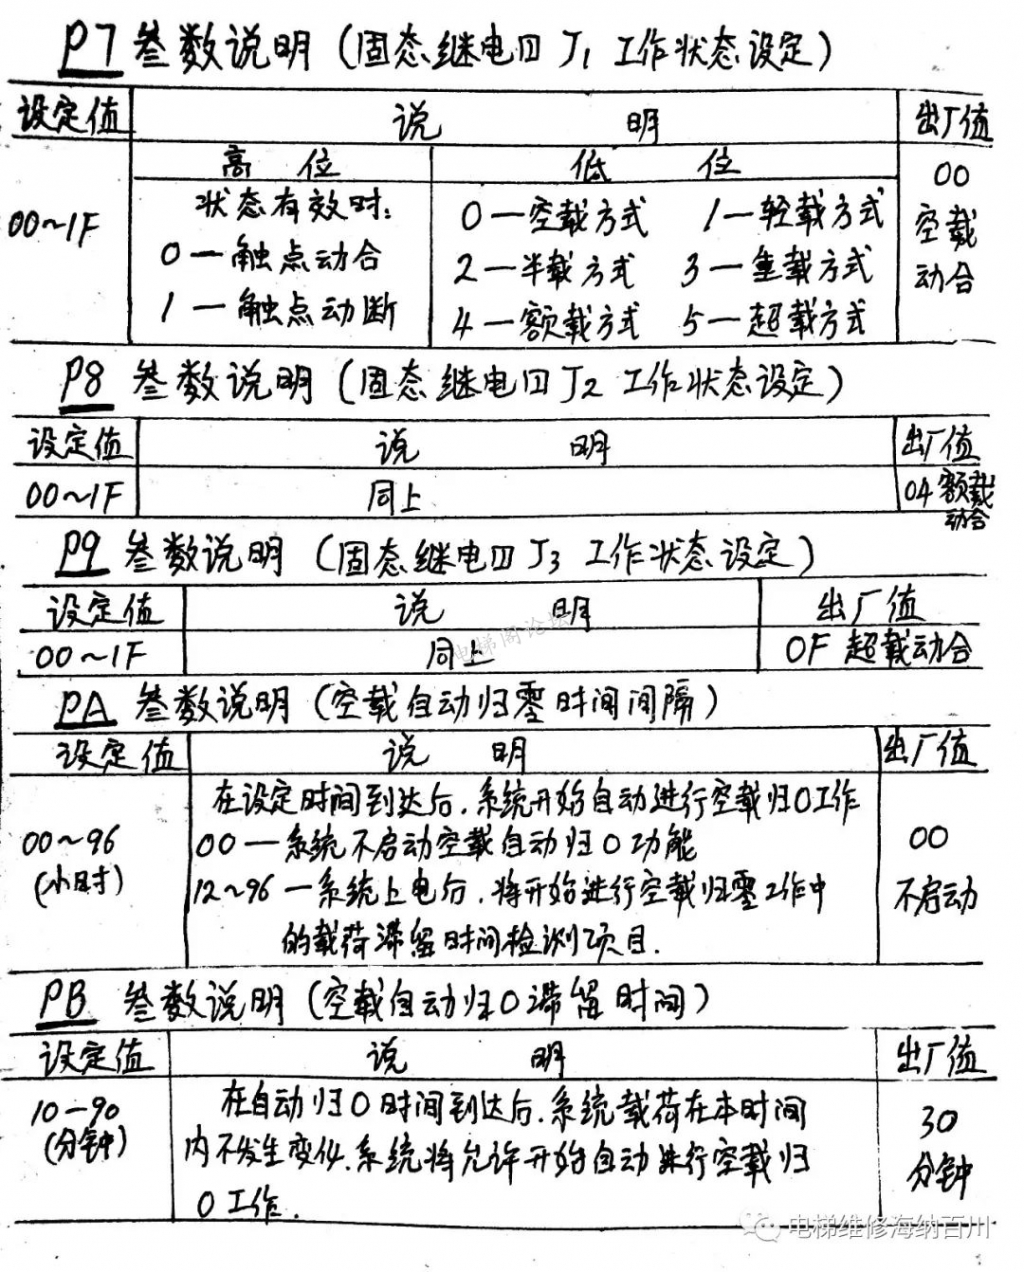 P7 叁数说明(固态继电口J1工作状态设定)
设定值 说 明 出厂值
高 位 低 位 00
状态有效时: 0—空载方式 1—轻载方式 空载
00~1F 0—触点动合 2—半载方式 3—重载方式 动合
1—触点动断 4—额载方式 5—超载方式
P8 叁数说明(固态继电口J2工作状态设定)
设定值 说 明 出厂值
00~1F 同上 04 额载
动合
P9 叁数说明(固态继电口J3工作状态设定)
设定值 说 明 出厂值
00~1F 同上 0F 超载动合
电梯阁论坛
PA 叁数说明(空载自动归零时间间隔)
设定值 说 明 出厂值
在设定时间到达后.系统开始自动进行空载归0工作
00~96 00—系统不启动空载自动归0功能 00
(小时) 12~96—系统上电后.将开始进行空载归零工作中 不启动
的载荷滞留时间检测项目.
PB 叁数说明(空载自动归0滞留时间)
设定值 说 明 出厂值
10—90 在自动归0时间到达后.系统载荷在本时间 30
(分钟) 内不发生变化.系统将允许开始自动进行空载归 分钟
0工作.
电梯维修海纳百川